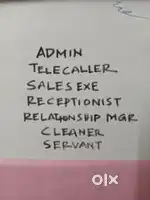 ADMIN
TELECALLER
SALES EXE
RECEPTIONIST
RELATIONSHIP MGR
CLEANER
SERVANT
olx